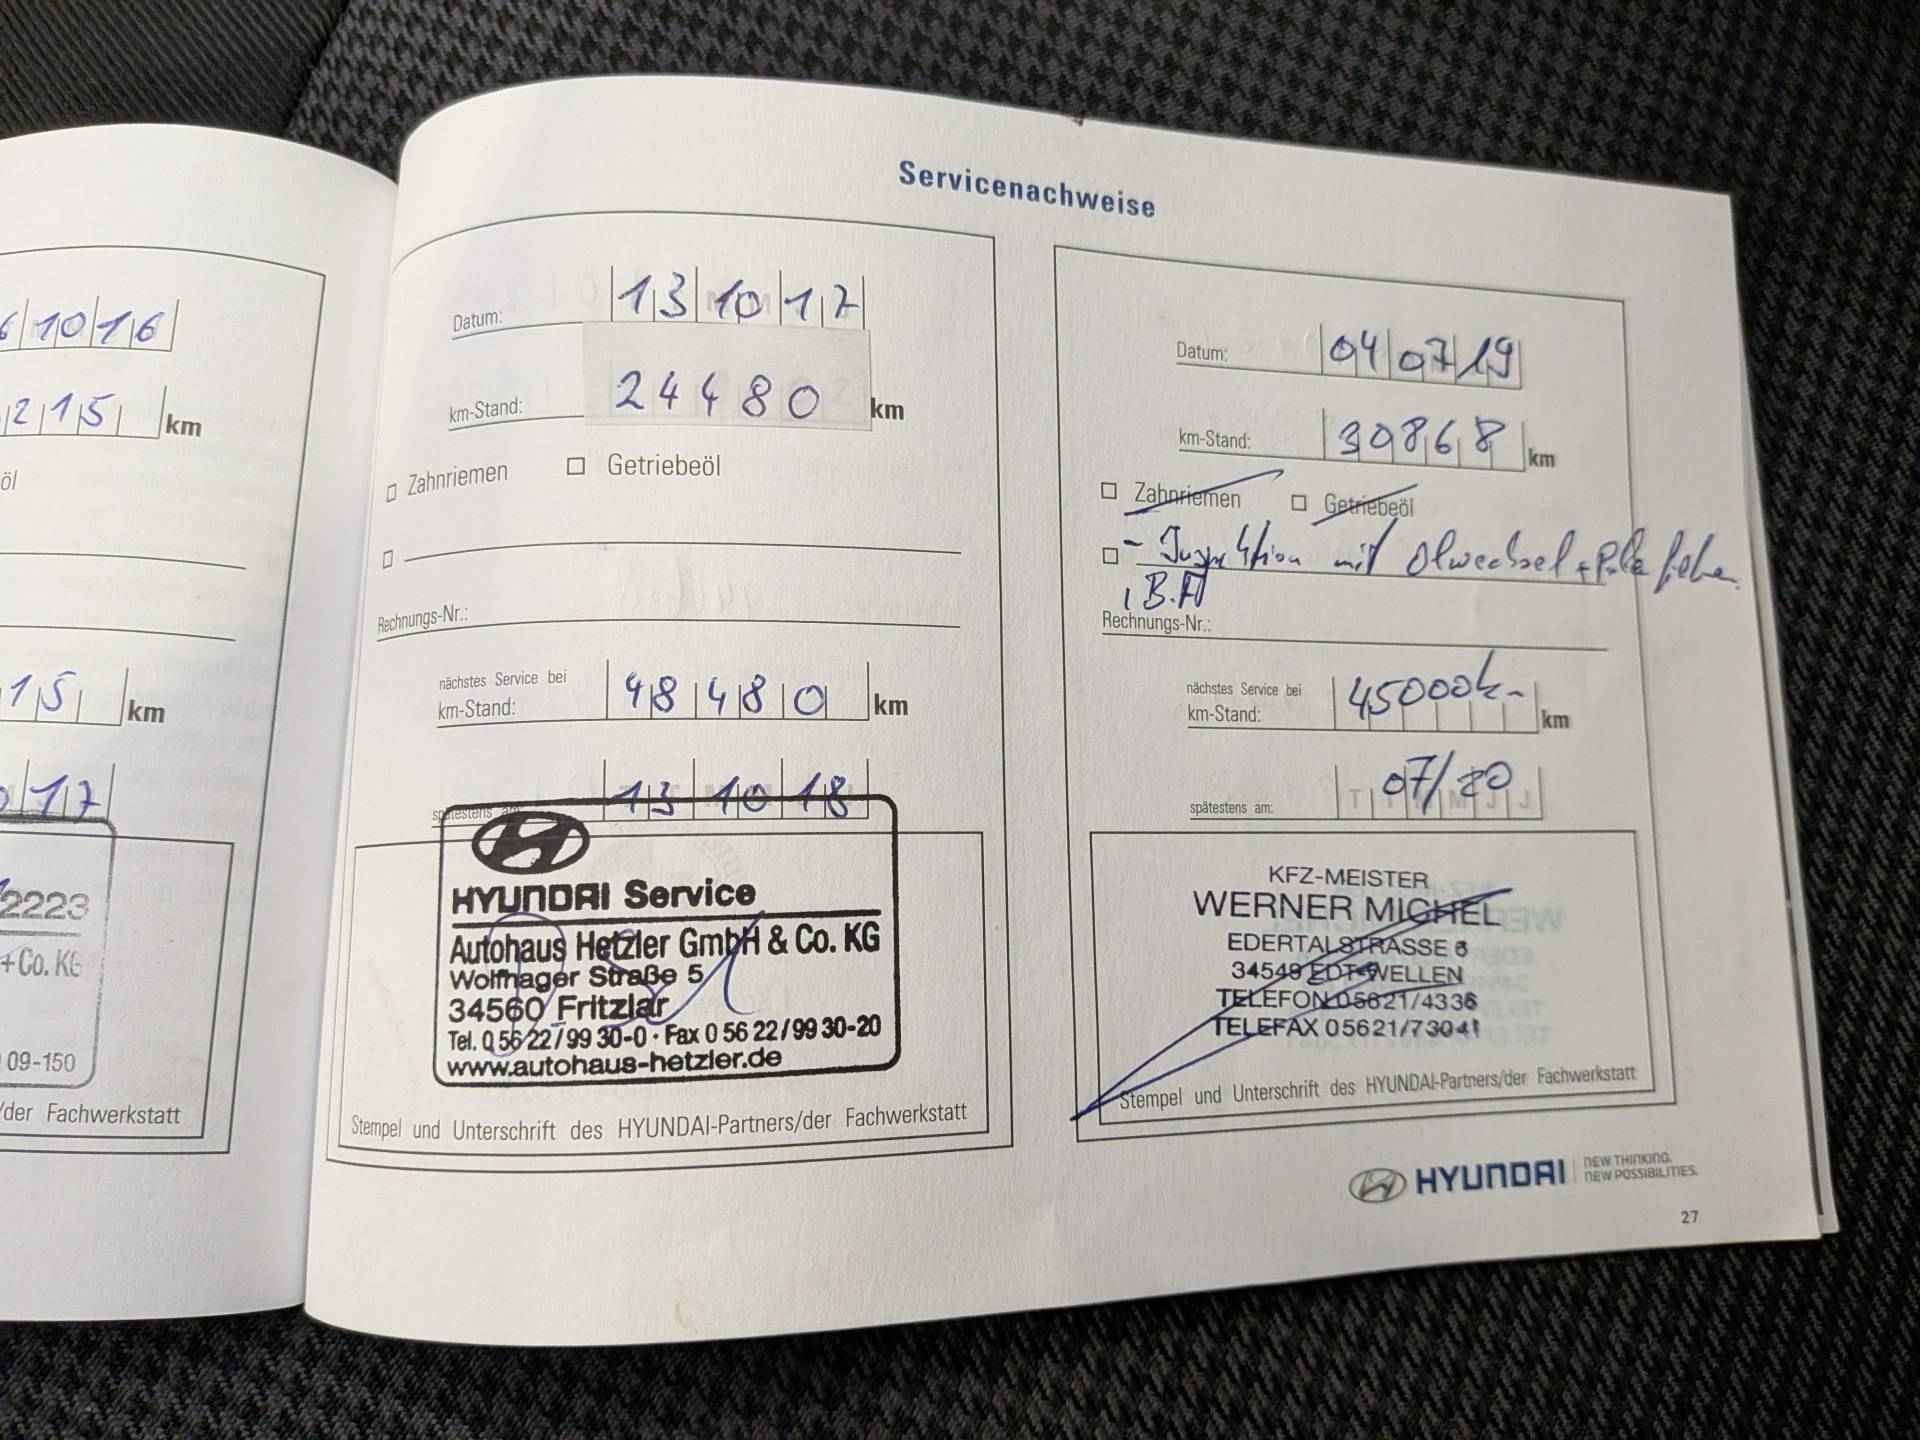 Servicenachweise
6 10 16
215 km
öl
15 km
17
2223
+Co. KG
09-150
/der Fachwerkstatt
Datum: 13 10 17
km-Stand: 24480 km
Zahnriemen Getriebeöl
Rechnungs-Nr.:
nächstes Service bei
km-Stand: 48480 km
spätestens am: 13 10 18
HYUNDAI Service
Autohaus Hetzler GmbH & Co. KG
Wolfhager Straße 5
34560 Fritzlar
Tel. 0 56 22/99 30-0 · Fax 0 56 22/99 30-20
www.autohaus-hetzler.de
Stempel und Unterschrift des HYUNDAI-Partners/der Fachwerkstatt
Datum: 04 07 19
km-Stand: 30868 km
Zahnriemen Getriebeöl
- Inspektion mit Ölwechsel +
Rechnungs-Nr.:
nächstes Service bei
km-Stand: 45000 km
spätestens am: 07/20
KFZ-MEISTER
WERNER MICHEL
EDERTALSTRASSE 6
34549 EDT-WELLEN
TELEFON 05621/4336
TELEFAX 05621/73041
Stempel und Unterschrift des HYUNDAI-Partners/der Fachwerkstatt
HYUNDAI NEW THINKING.
NEW POSSIBILITIES.
27